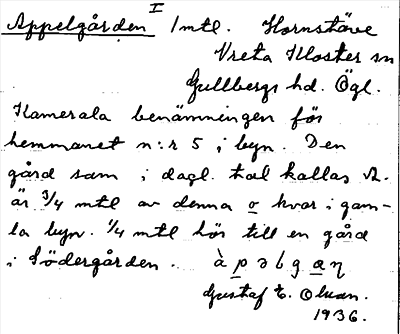 Appelgården I 1 mtl. Hornstäve
Vreta Kloster sn
Gullbergs hd. Ögl.
Kamerala benämningen för
hemmanet n:r 5 i byn. Den
gård som i dagl. tal kallas A.
är 3/4 mtl av denna o kvar i gam-
la byn. 1/4 mtl hör till en gård
i Södergården. àpəlgaη
Gustaf E. Olsson.
1936.